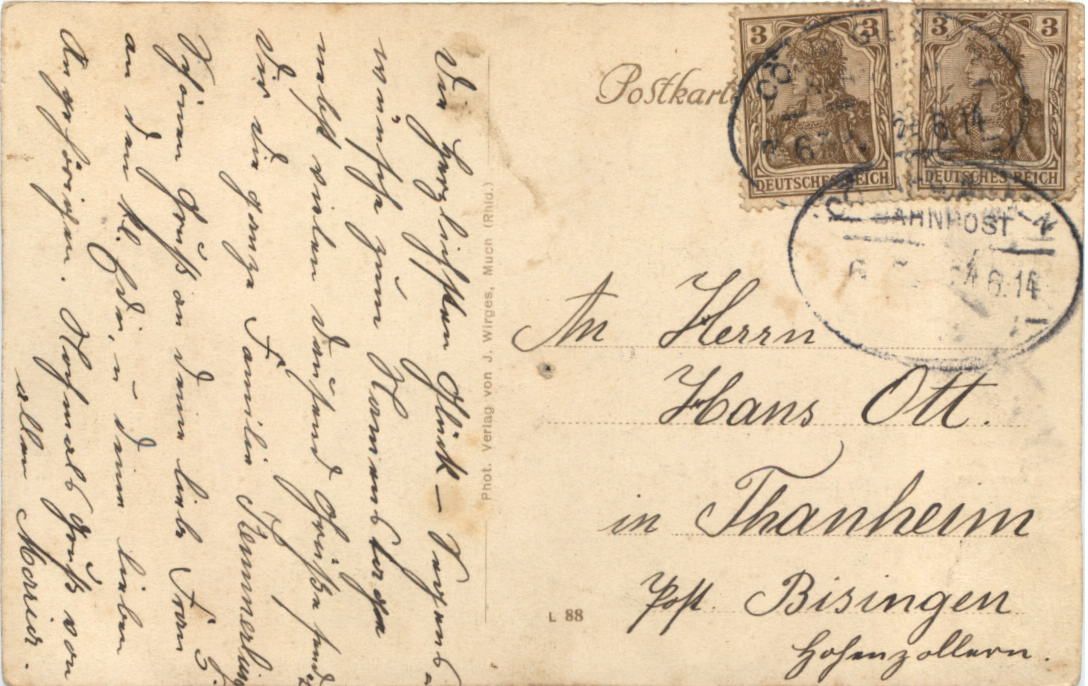 Die herzlichsten Glück- Segens
wünsche zum Namenstage
nebst vielen dausend Grüße sendet
Dir die ganze Familie
Schönen Gruß an deine liebe Frau
an den kl. u deine lieben
Angehörigen. Nochmals Gruß von
allen
Postkarte
3 3
3 3
DEUTSCHES REICH
DEUTSCHES REICH
6.14
BAHNPOST
6.14
An Herrn
Hans Ott.
in Thanheim
Post Bisingen
Hohenzollern.
Phot. Verlag von J. Wirges, Much (Rhld.)
L 88